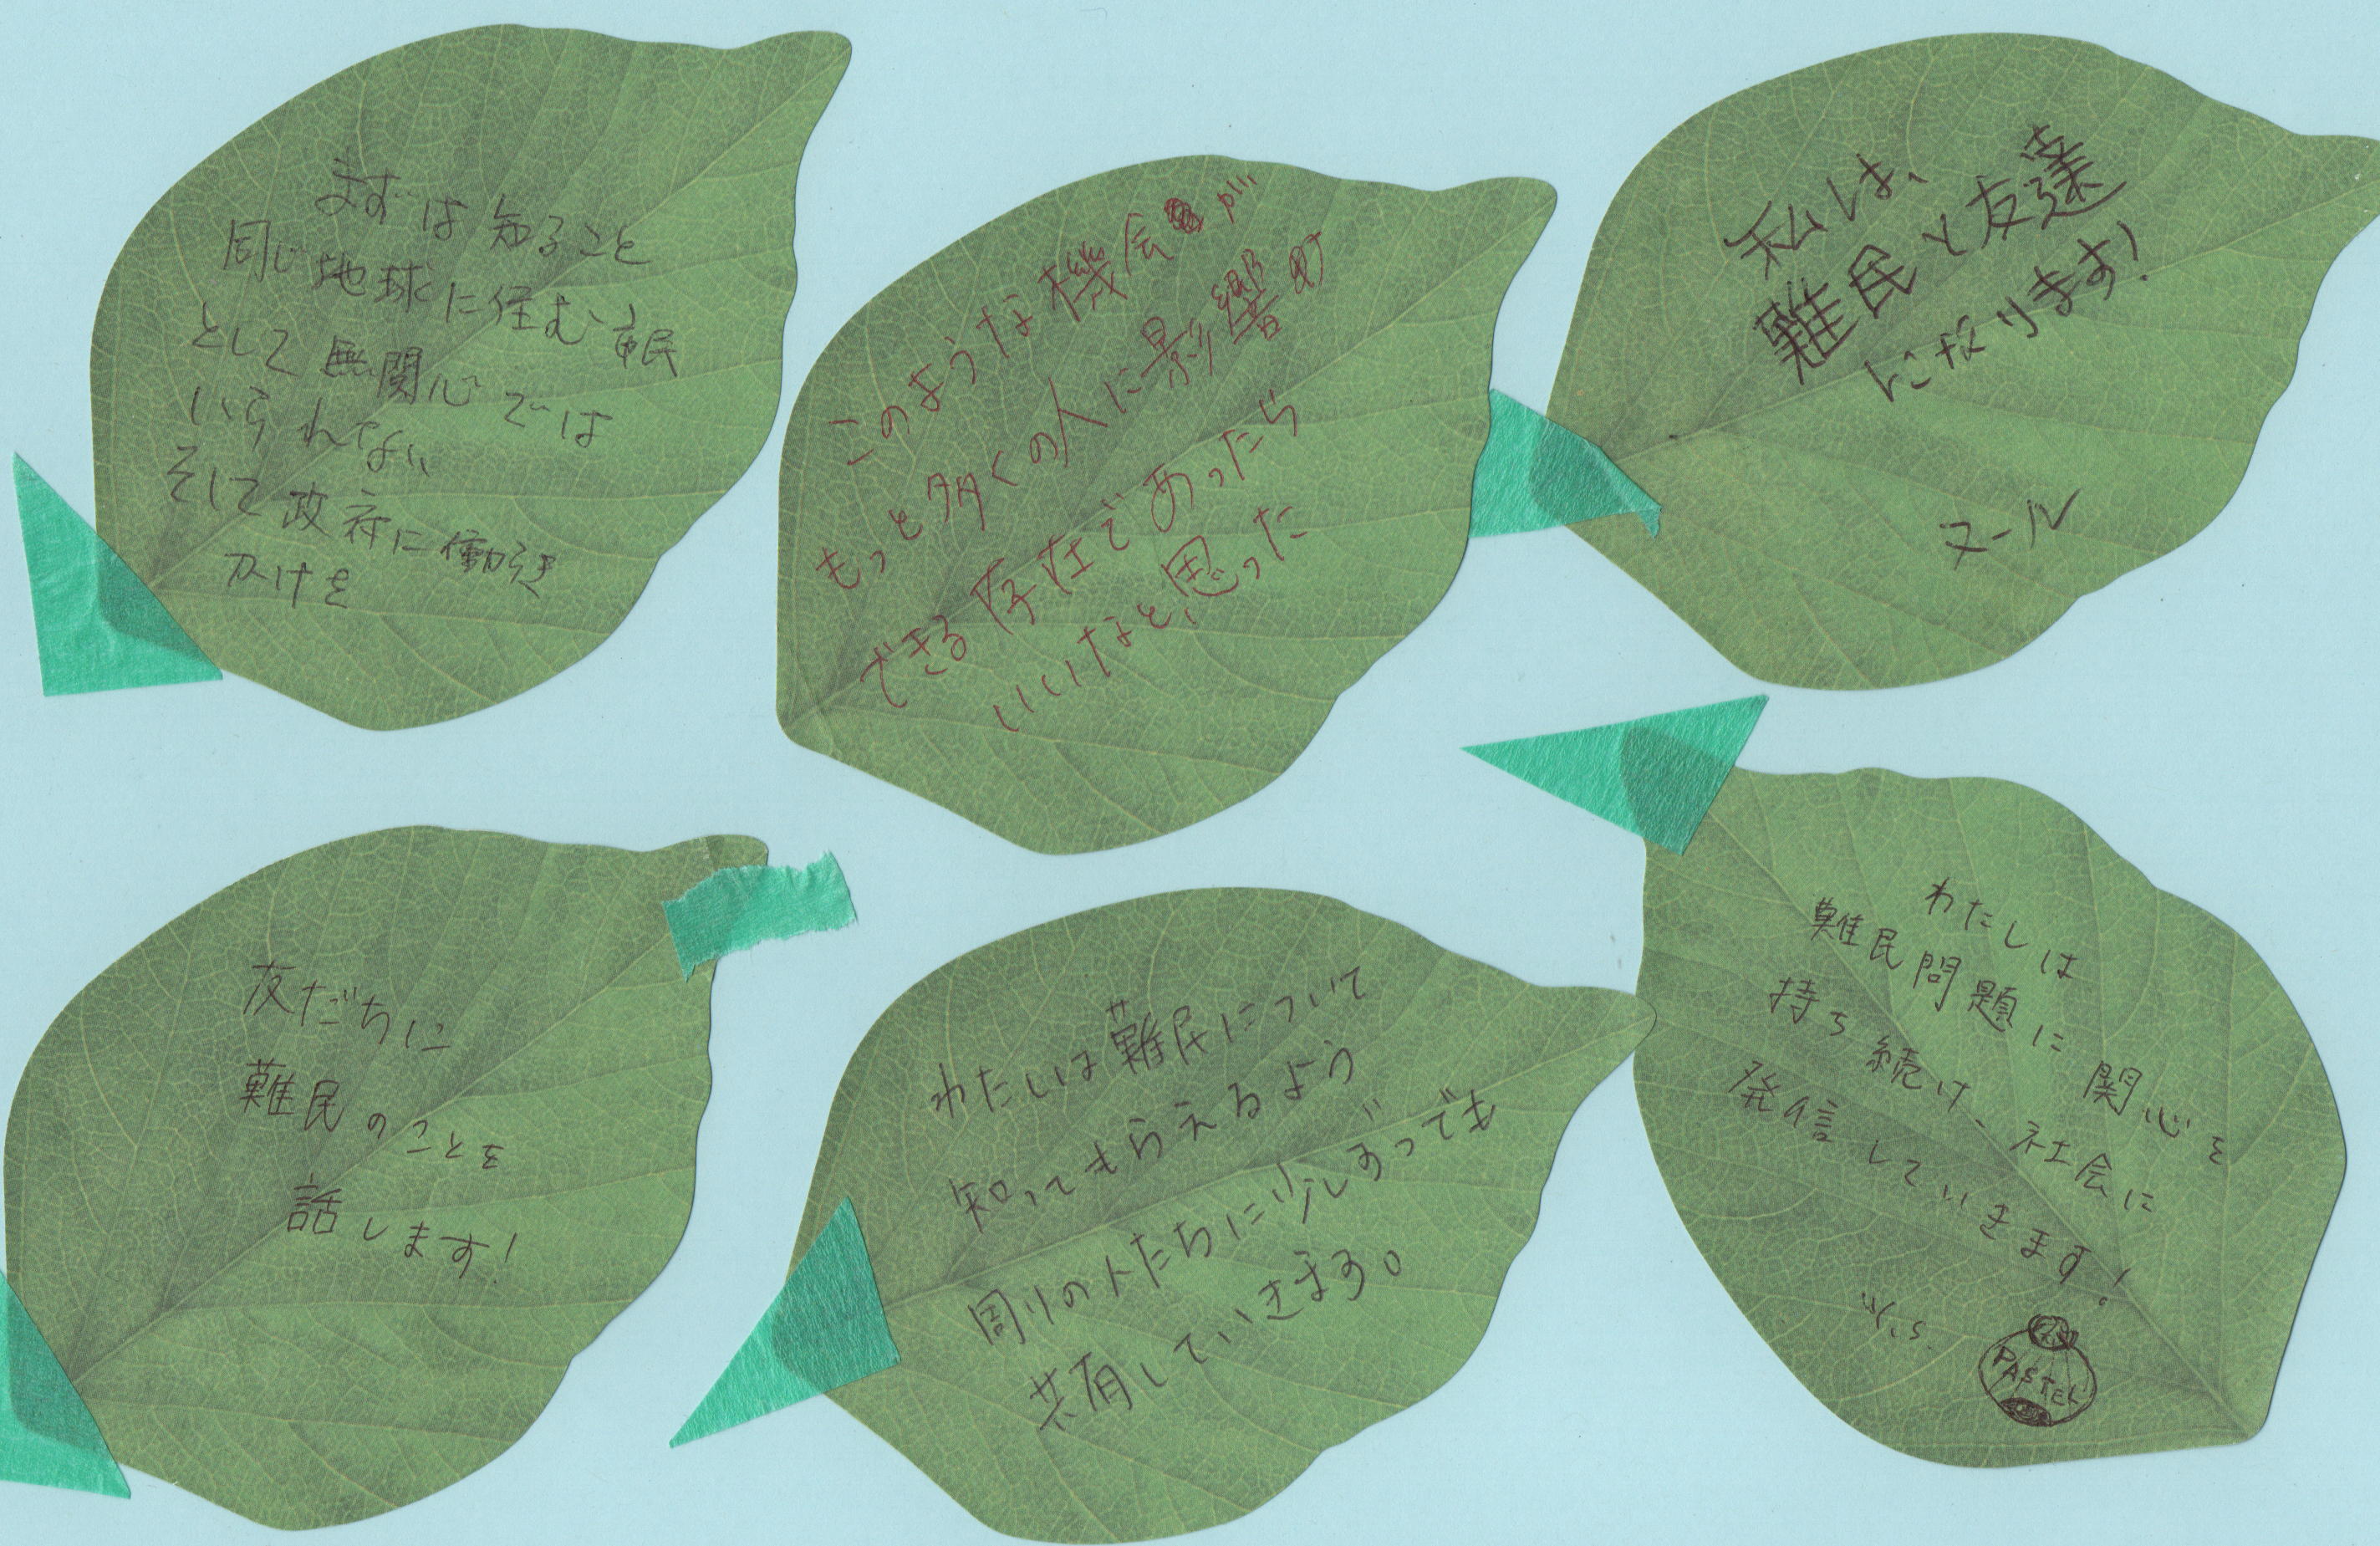 まずは知ること
同じ地球に住む市民
として無関心では
いられない
そして政府に働き
かけを
このような機会が
もっと多くの人に影響
できる存在であったら
いいなと、思った
私は、
難民と友達
になります!
ヌール
友だちに
難民のことを
話します!
わたしは難民について
知ってもらえるよう
周りの人たちに少しずつでも
共有していきます。
わたしは
難民問題に関心を
持ち続け、社会に
発信していきます!
PASTEL